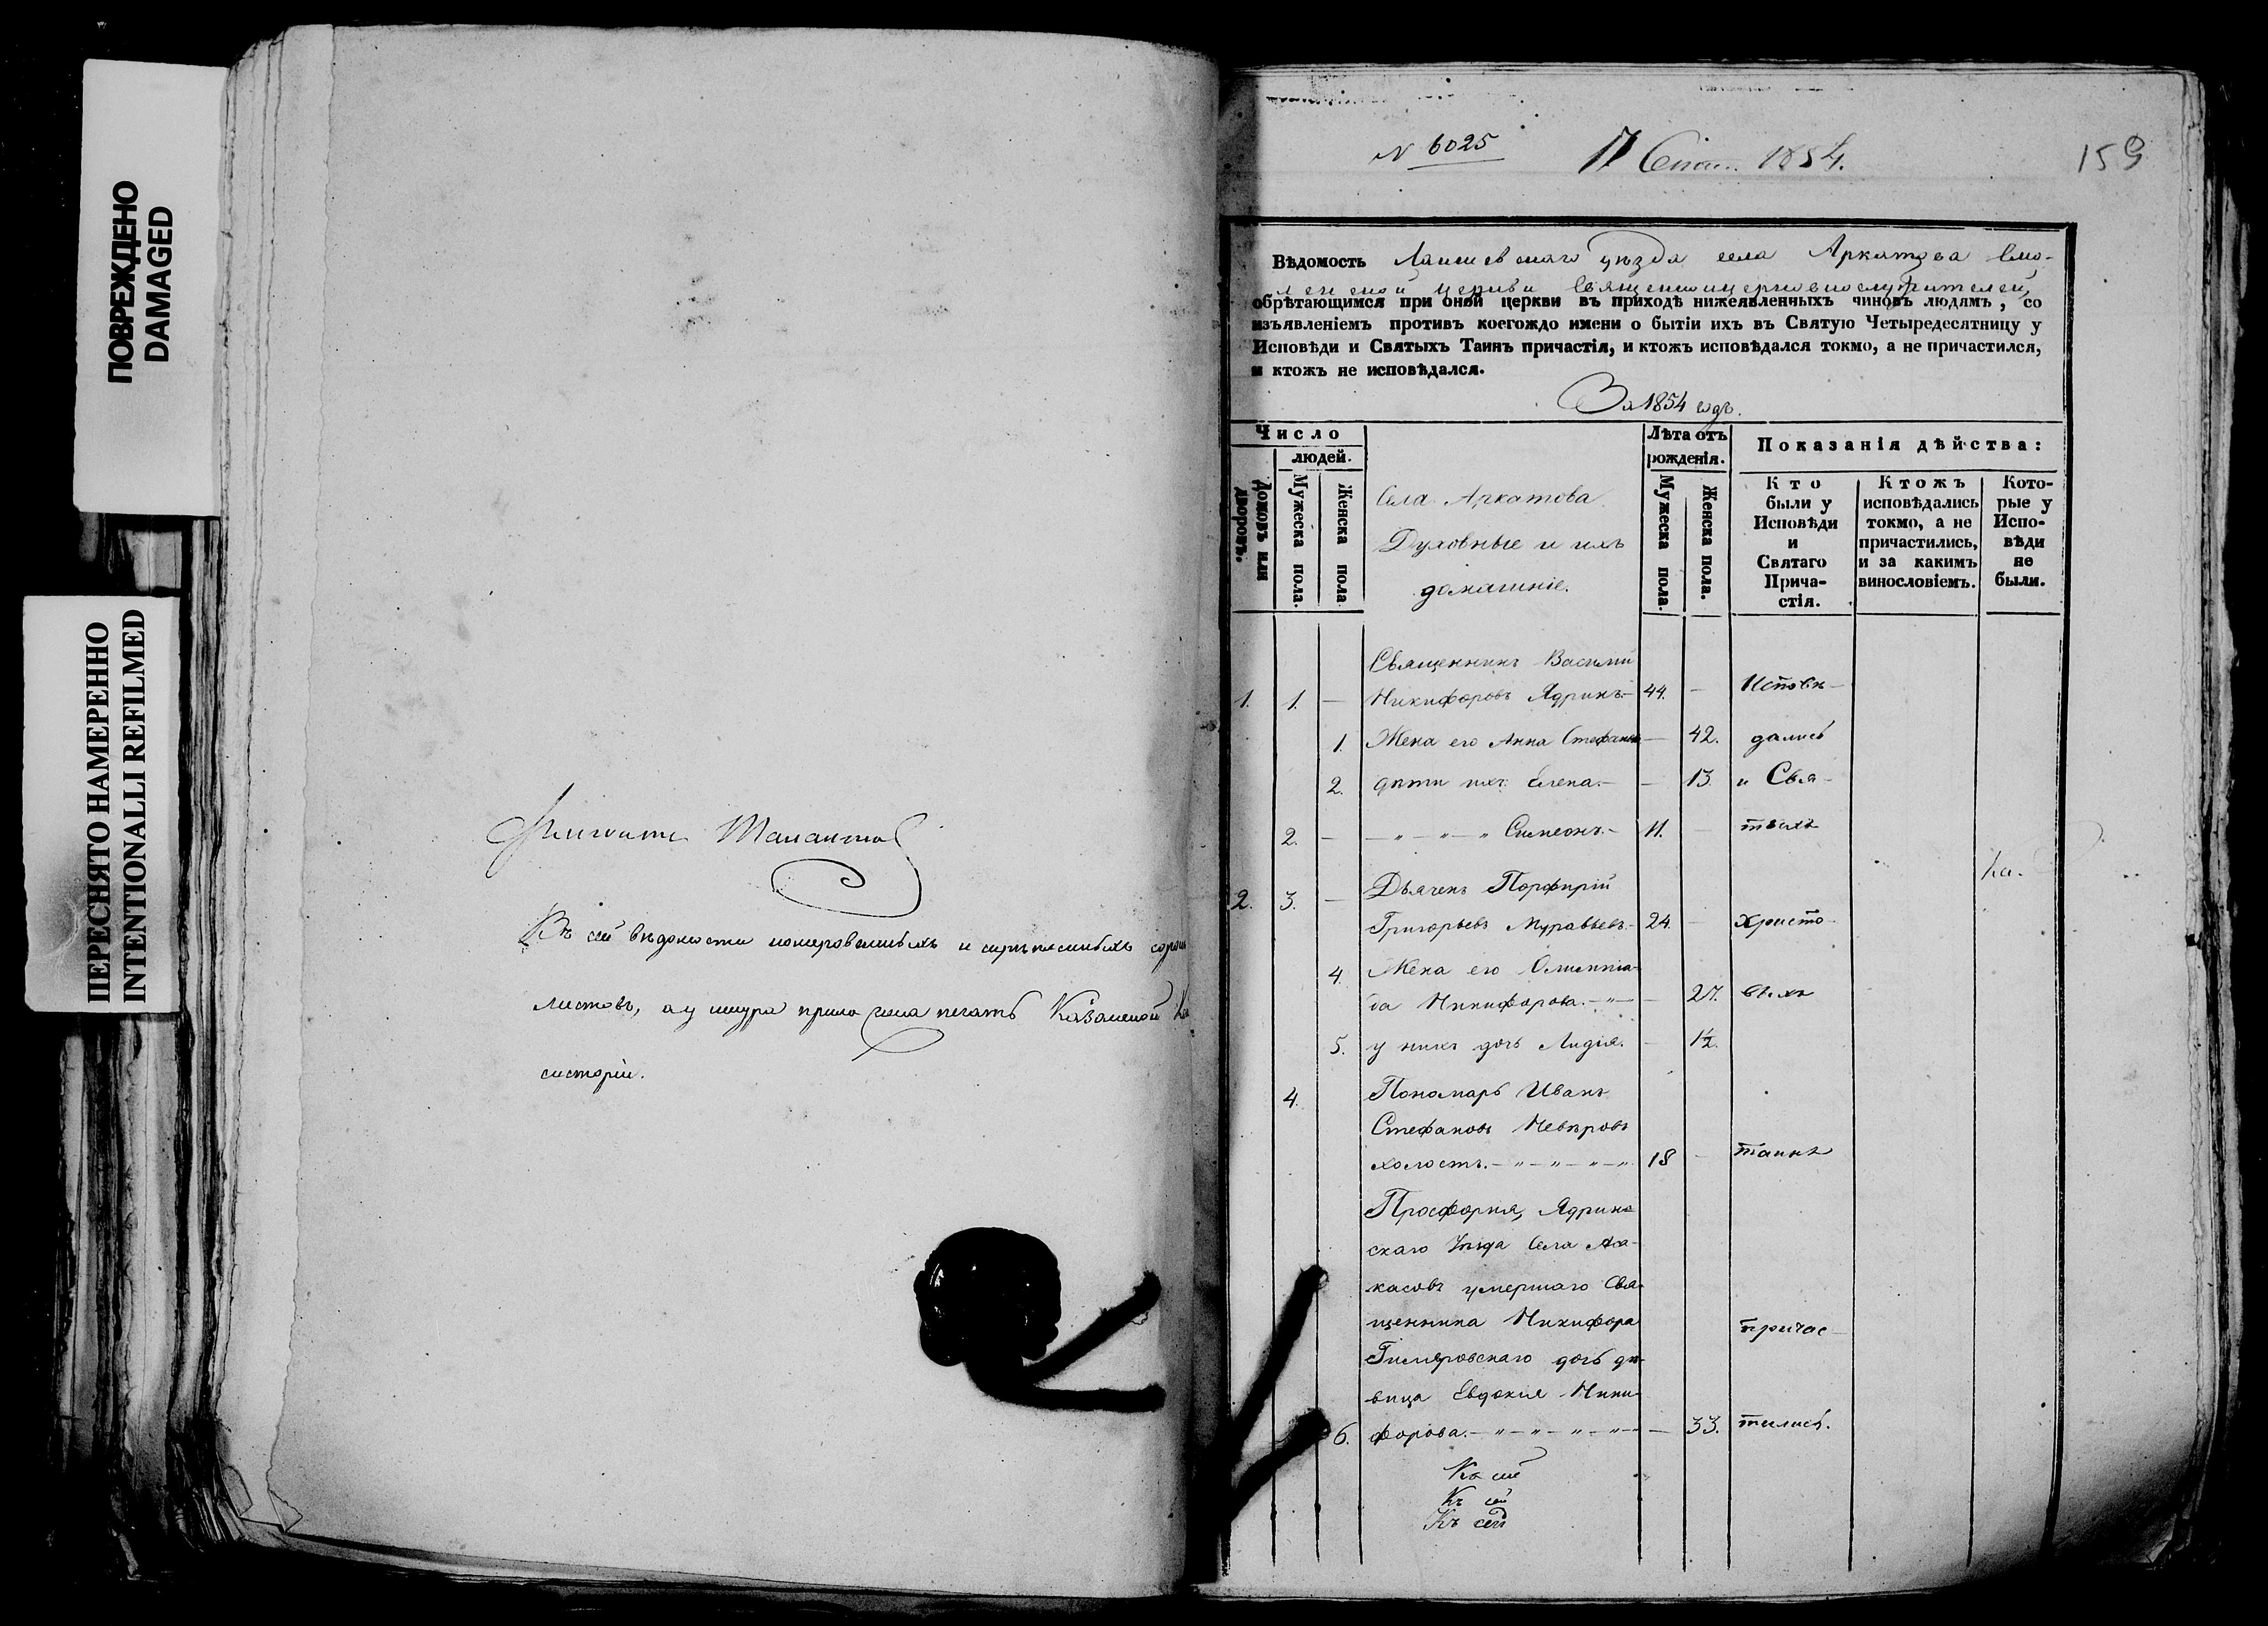 ПОВРЕЖДЕНО
DAMAGED
ПЕРЕСНЯТО НАМЕРЕННО
INTENTIONALLI REFILMED
Талантов
Въ сей вѣдомости номерованныхъ и скрѣпленныхъ
листовъ, а у шнура приложена печать Казанской
систоріи.
N 6025
1854.
159
Вѣдомость Лаишевскаго уѣзда села Аркатова Смо-
ленской церкви Священноцерковнослужителей,
обрѣтающимся при оной церкви въ приходѣ нижеявленныхъ чиновъ людямъ, со
изъявленіемъ противъ коегождо имени о бытіи ихъ въ Святую Четыредесятницу у
Исповѣди и Святыхъ Таинъ причастія, и ктожъ исповѣдался токмо, а не причастился,
и ктожъ не исповѣдался.
За 1854 годъ.
Число
людей.
Домовъ или дворовъ.
Мужеска пола.
Женска пола
Села Аркатова
Духовные и ихъ
домашніе.
Лѣта отъ
рожденія.
Мужеска пола.
Женска пола.
Показанія дѣйства:
Кто
были у
Исповѣди
и
Святаго
Прича-
стія.
Ктожъ
исповѣдались
токмо, а не
причастились,
и за какимъ
винословіемъ.
Кото-
рые у
Испо-
вѣди
не
были.
Священникъ Василій
1. 1. — Никифоровъ Ядринъ.— 44. — Исповѣ-
1. Жена его Анна Стефанова — 42. дались
2. дѣти ихъ: Елена.— — 13. и Свя-
2. — — " — " — " Симеонъ.— 11. — тыхъ
Дьячекъ Порфирій
2. 3. — Григорьевъ Муравьевъ.— 24. — Христо-
4 Жена его Олимпіа-
да Никифорова.— " — — 27. выхъ
5. у нихъ дочь Лидія. — 1½.
4. Пономарь Иванъ
Стефановъ Невѣровъ
холостъ.— " — " — " — " 18 — таинъ
Просфорня, Ядринс
скаго Уѣзда Села Аса-
касовъ умершаго Свя-
щенника Никифора причас-
Гимяровскаго дочь дѣ-
вица Евдокія Ники-
6. форова.— " — " — " — " — — 33. тились.
Къ сей
Къ сей
Къ сей